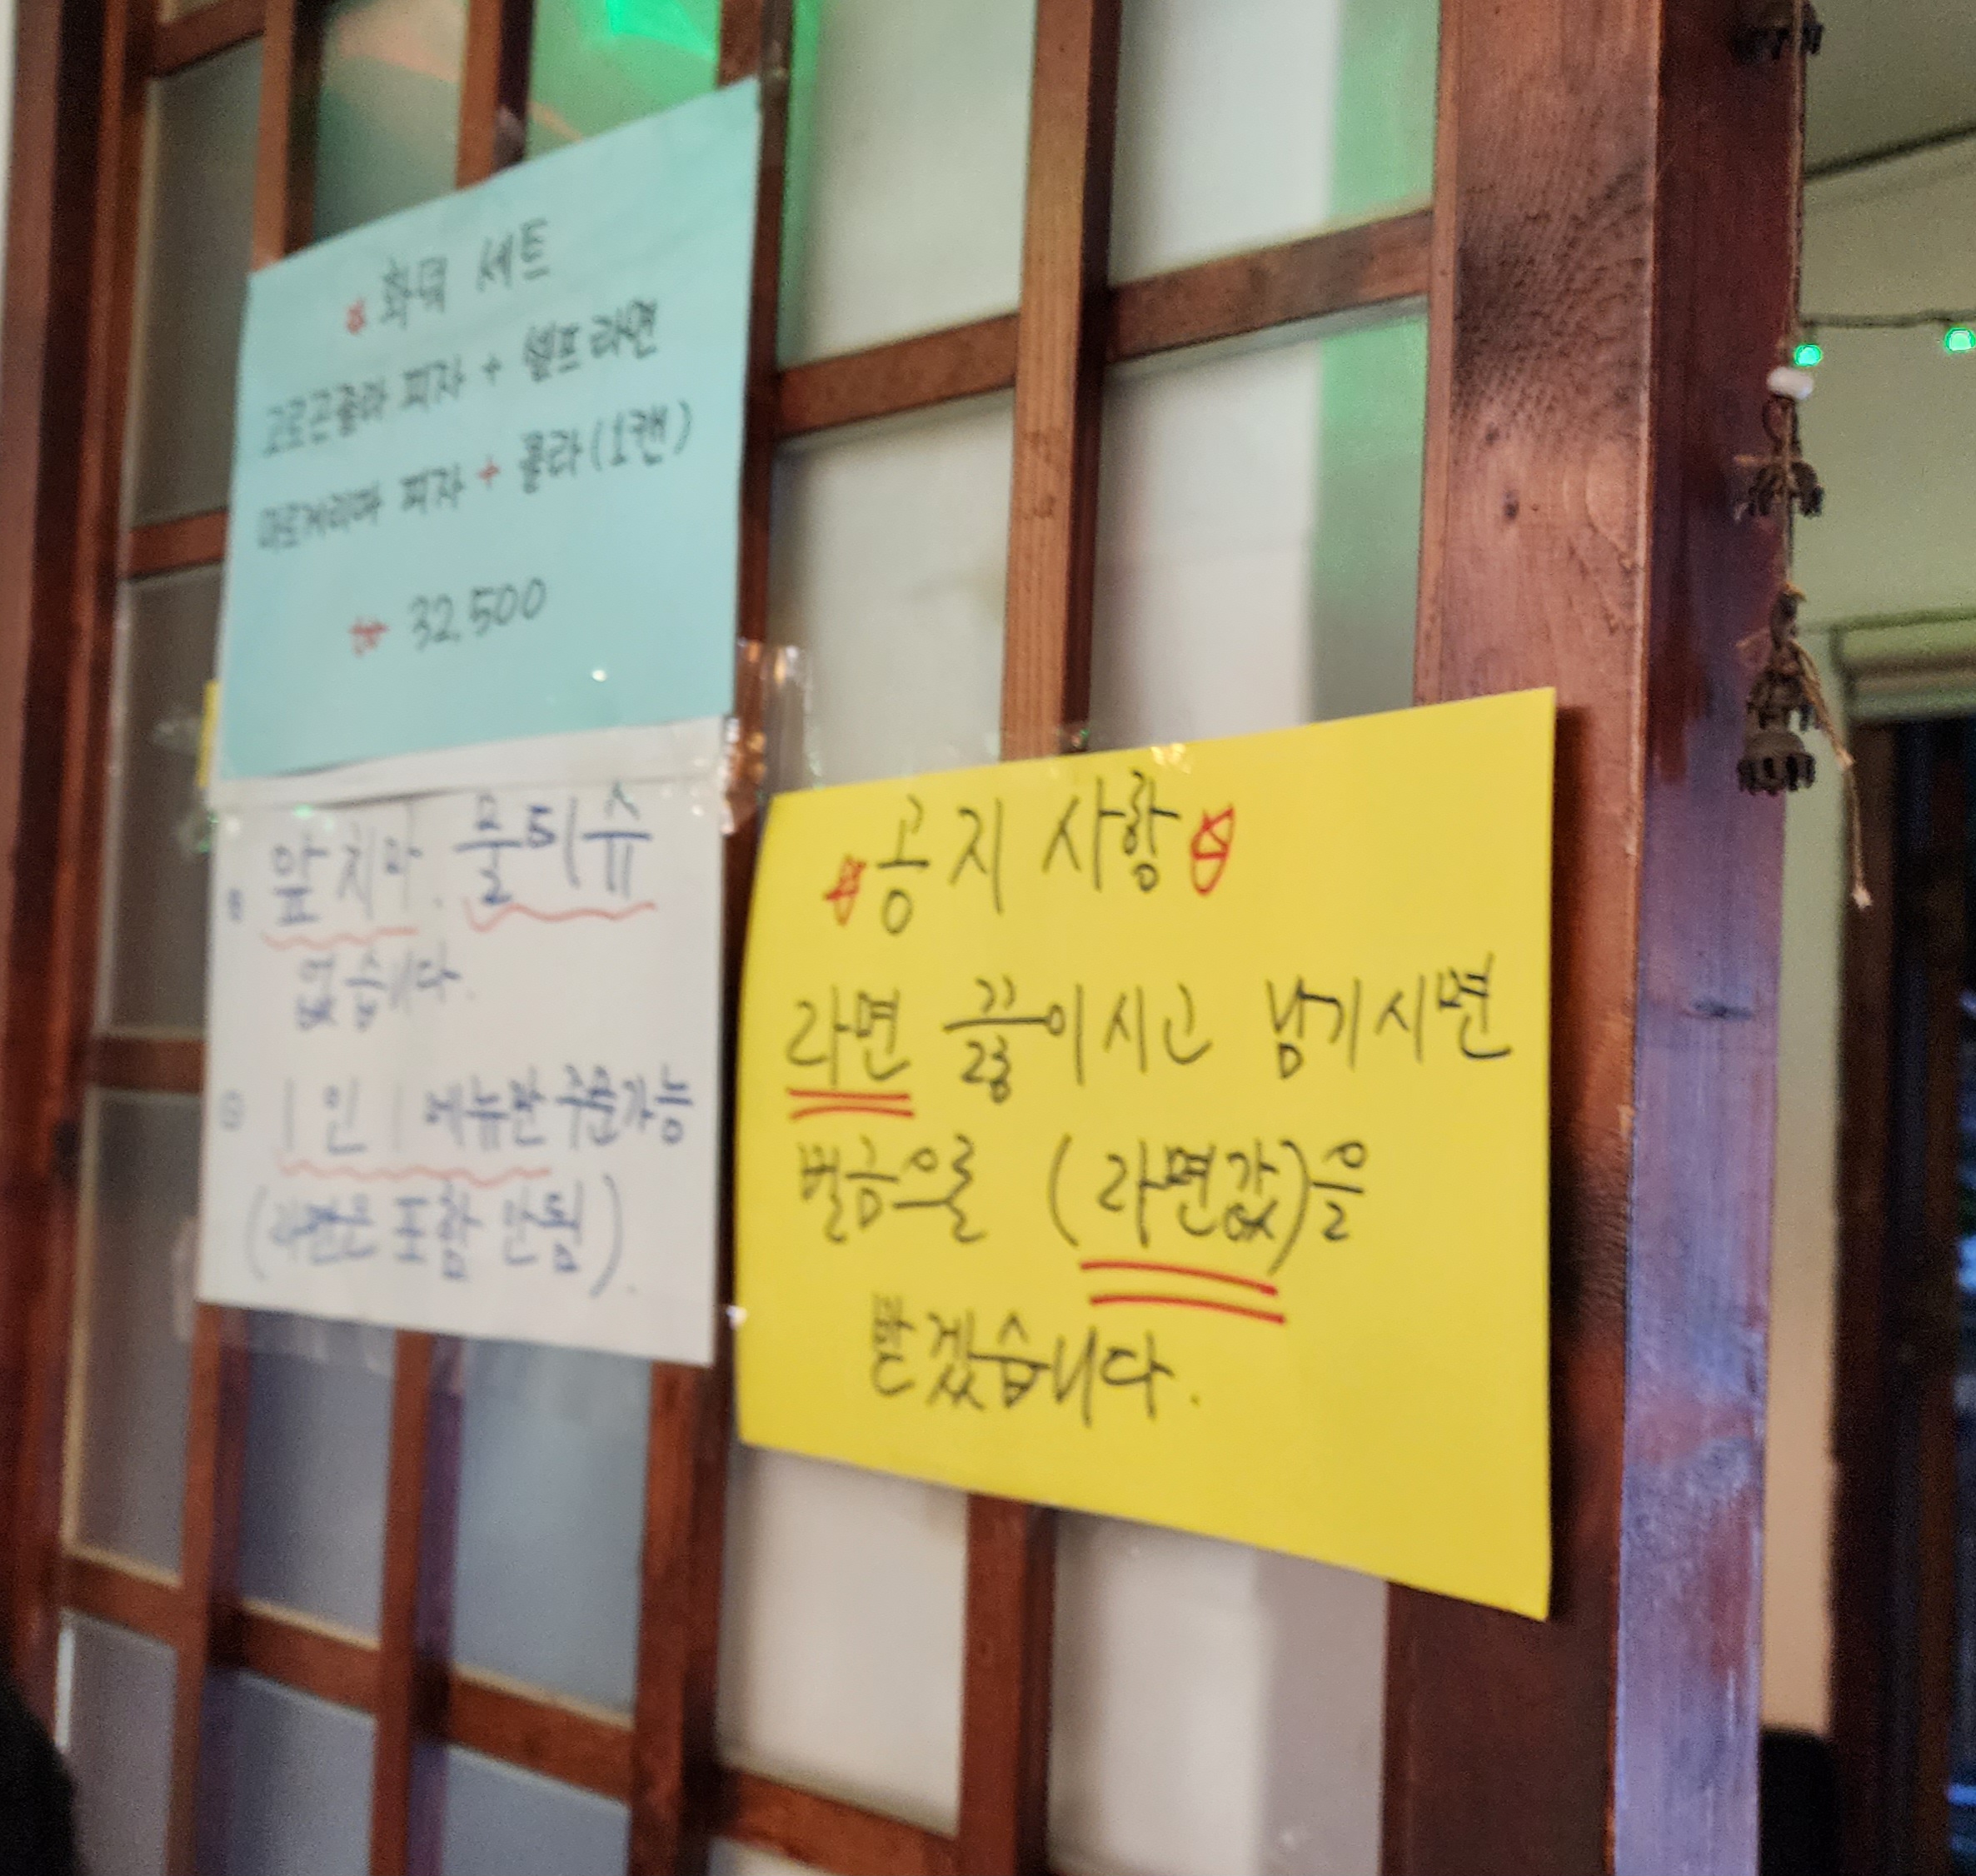 화덕 세트
고르곤졸라 피자 + 셀프라면
마르게리따 피자 + 콜라(1캔)
32,500
앞치마. 물티슈
없습니다.
1인 1메뉴만 주문가능
(라면은 포함 안됨).
공지사항
라면 끓이시고 남기시면
벌금으로 (라면값)을
받겠습니다.